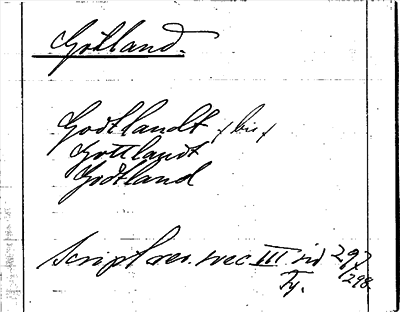 Gotland.
Godtlandt /: bis :/
Gottlandt
Godtland
Script. rer. svec. III. sid 297
Ty. 1298.